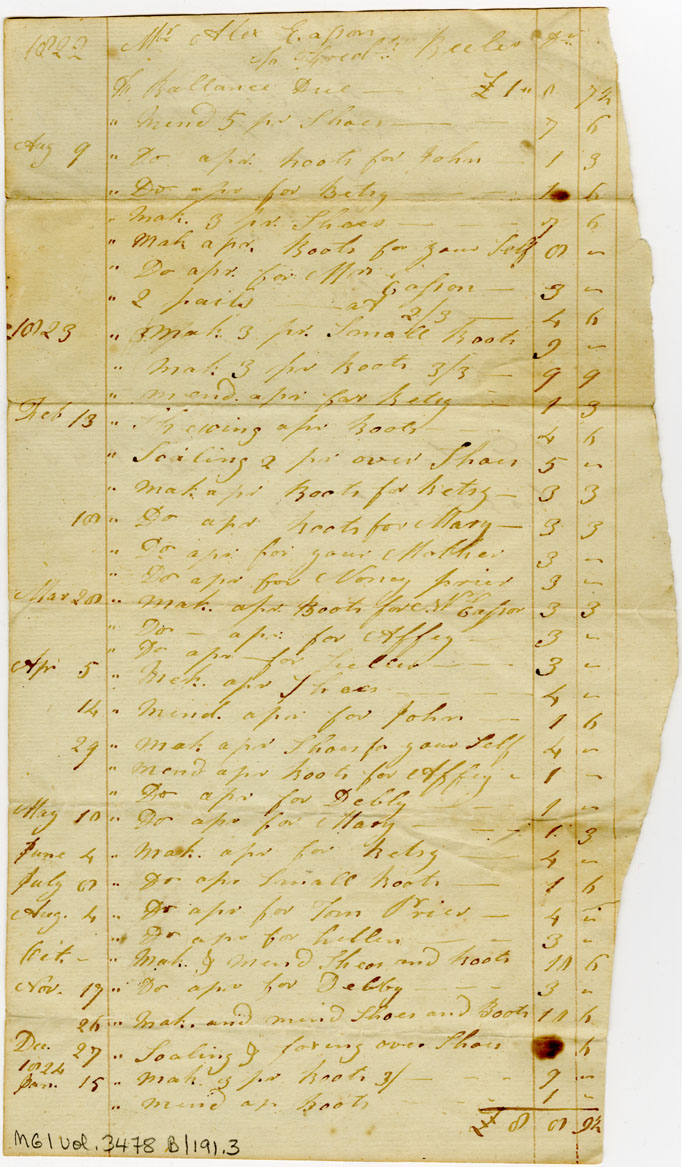 1822 Mr Alex Eason
to Fredk Keeler Dr
To Ballance Due — £ 1 " 8 7½
" Mend 5 pr Shoes — 7 6
Aug 9 " Do a pr boots for John 1 3
" Do a pr for Betsy 1 6
" Mak. 3 pr. Shoes 7 6
" Mak a pr. Boots for your Self 8 "
" Do a pr. for Mrs Eason — 3 "
" 2 pairs — at 2/3 — 4 6
1823 " Mak 3 pr. Small Boots 9 "
" Mak 3 pr boots 3/3 — 9 9
" mend. a pr for Betsy — 1 3
Feb 13 " a pr Boots — 4 6
" Soaling 2 pr over Shoes 5 "
" Mak a pr Boots for Betsy — 3 3
18 " Do a pr boots for Mary — 3 3
" Do a pr for your Mother 3 "
" Do a pr for Noney prier 3 "
Mar 28 " Mak. a pr. Boots for N Eason 3 3
" Do — a pr. for Affey — 3 "
" Do a pr — for — 3 "
Apr 5 " Mak. a pr Shoes — 4 "
14 " Mend. a pr for John — 1 6
29 " Mak a pr Shoes for your Self 4 "
" Mend a pr boots for Affey " 1 "
" Do a pr for Debby 1 "
May 10 " Do a pr for Mary — 1. 3
June 4 " Mak. a pr for Betsy — 4 "
July 8 " Do a pr Small boots — 1 6
Aug. 4 " Do a pr for Tom Prier — 4 "
" Do a pr for hellen — 3 "
Oct. — " Mak & mend Shoes and boots 10 6
Nov. 17 " Do a pr for Debby — 3 "
26 " Mak. and mend Shoes and Boots 10 6
Dec. 27 " Soaling & over Shoes 6
1824
Jan. 15 " Mak 3 pr boots 3/ — 9 "
" mend a pr Boots 1 "
£ 8 8 9½
MG1 Vol. 3478 B/191.3